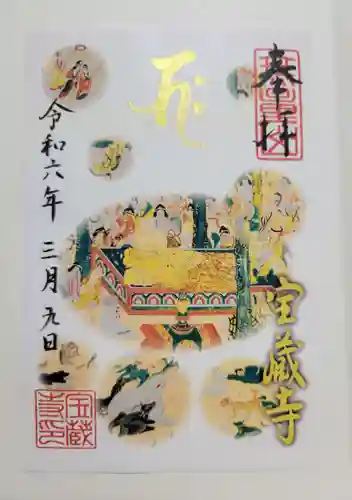 奉拝
宝蔵寺
令和六年 三月 九日
宝蔵
寺印